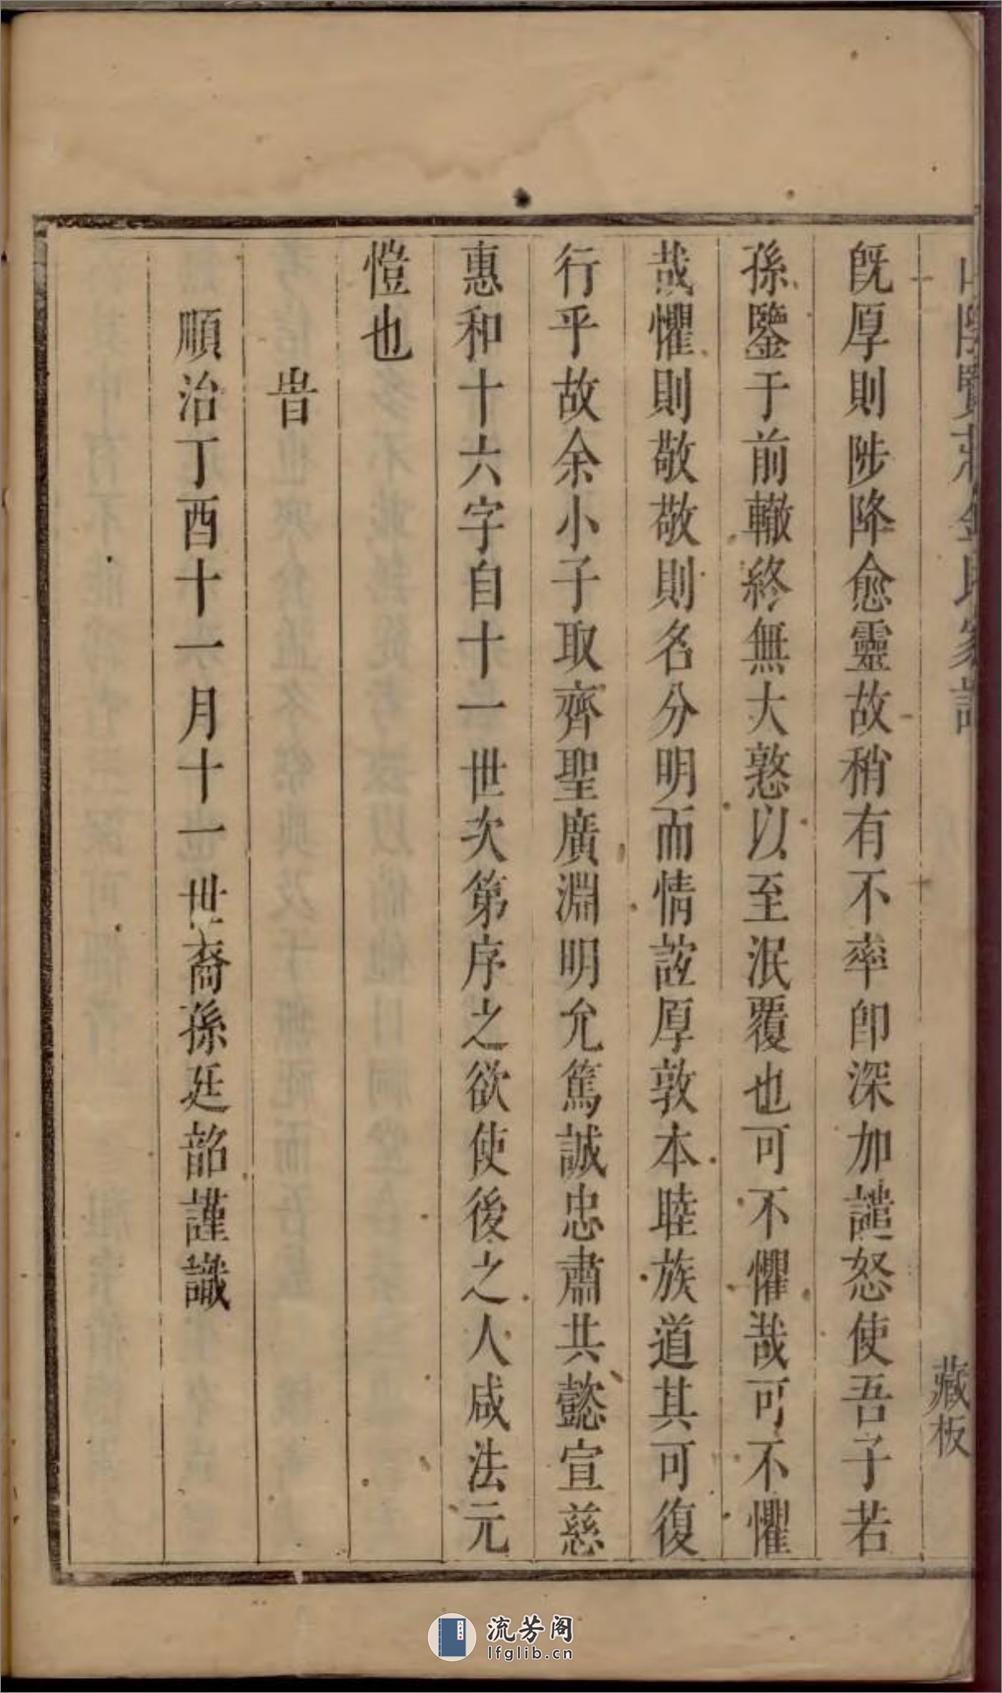 山陰賢莊金氏家譜
藏板
旣厚則陟降愈靈故稍有不率卽深加譴怒使吾子若
孫鑒于前轍終無大憝以至泯覆也可不懼哉可不懼
哉懼則敬敬則名分明而情誼厚敦本睦族道其可復
行乎故余小子取齊聖廣淵明允篤誠忠肅共懿宣慈
惠和十六字自十一世次第序之欲使後之人咸法元
愷也
旹
順治丁酉十一月十一世裔孫廷韶謹識
流芳阁
lfglib.cn